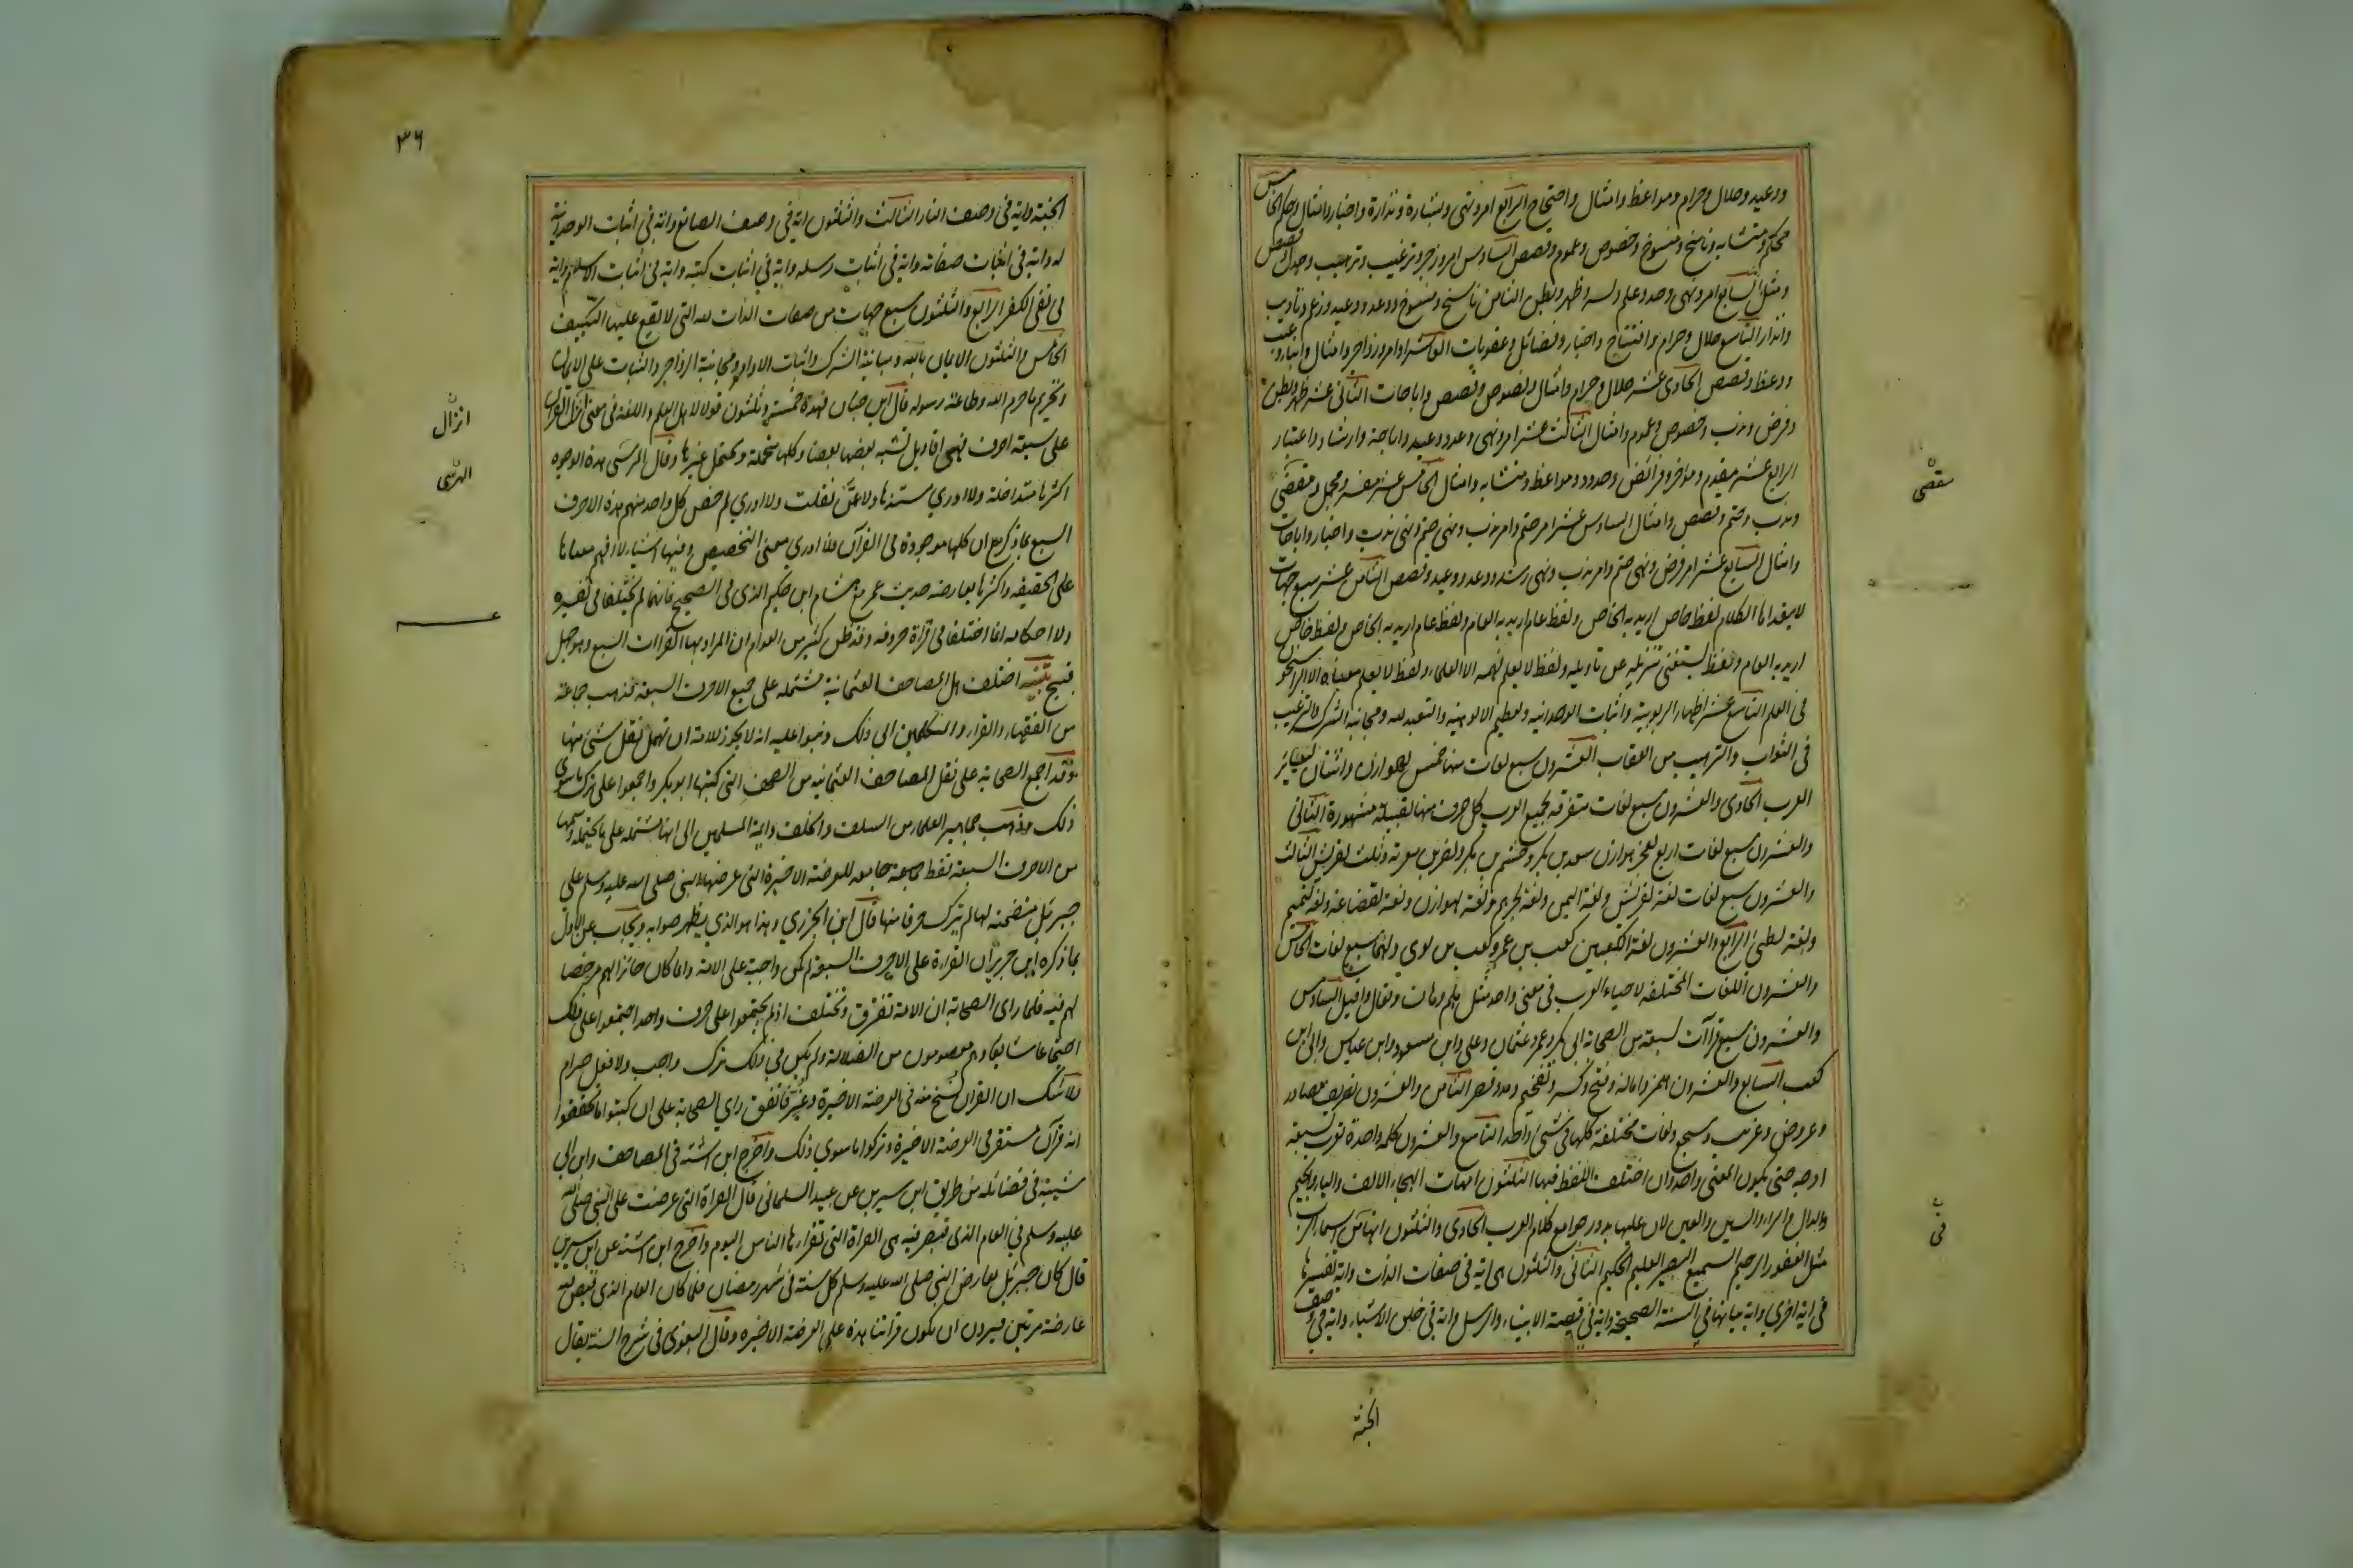 ووعيد وحلال وحرام ومواعظ وامثال واحتجاج الرابع امر ونهى وبشارة ونذارة واخبار وامثال الخامس
محكم ومتشابه وناسخ ومنسوخ وخصوص وعموم وقصص السادس امر وزجر وترغيب وترهيب وجدل وقصص
ومثل السابع امر ونهى وحد وعلم وسر وظهر وبطن الثامن ناسخ ومنسوخ ووعد ووعيد ورغم وتاديب
وانذار التاسع حلال وحرام وافتتاح واخبار وفضائل وعقوبات العاشر اوامر وزواجر وامثال وانباء وعتب
ووعظ وقصص الحادى عشر حلال وحرام وامثال ونصوص وقصص واباحات الثانى عشر ظهر وبطن
وفرض وندب وخصوص وعموم وامثال الثالث عشر امر ونهى ووعد ووعيد واباحة وارشاد واعتبار
الرابع عشر مقدم وموخر وفرائض وحدود ومواعظ ومتشابه وامثال الخامس عشر مفسر ومجمل ومقضى
وندب وحتم وقصص وامثال السادس عشر امر حتم وامر ندب ونهى حتم ونهى ندب واخبار واباحات
وامثال السابع عشر امر فرض ونهى حتم وامر ندب ونهى رشد ووعد ووعيد وقصص الثامن عشر سبع جهات
لا يتعداها الكلام لفظ خاص اريد به الخاص ولفظ عام اريد به العام ولفظ عام اريد به الخاص ولفظ خاص
اريد به العام ولفظ يستغنى بتنزيله عن تاويله ولفظ لا يعلم فهمه الا العلماء ولفظ لا يعلم معناه الا الراسخون
فى العلم التاسع عشر اظهار الربوبية واثبات الوحدانية وتعظيم الالوهية والتعبد لله ومجانبة الشرك والترغيب
فى الثواب والترهيب من العقاب العشرون سبع لغات منها خمس لهوازن واثنان لسائر
العرب الحادى والعشرون سبع لغات متفرقة لجميع العرب كل حرف منها لقبيلة مشهورة الثانى
والعشرون سبع لغات اربع لعجز هوازن سعد بن بكر وجشم بن بكر ونصر بن معوية وثلث لقريش الثالث
والعشرون سبع لغات لغة لقريش ولغة اليمن ولغة لجرهم ولغة لهوازن ولغة لقضاعة ولغة لتميم
ولغة لطى الرابع والعشرون لغة الكعبين كعب بن عمرو وكعب بن لوى ولهما سبع لغات الخامس
والعشرون اللغات المختلفة لاحياء العرب فى معنى واحد مثل هلم وهات وتعال واقبل السادس
والعشرون سبع قراآت لسبعة من الصحابة ابى بكر وعمر وعثمان وعلى وابن مسعود وابن عباس وابى بن
كعب السابع والعشرون همز وامالة وفتح وكسر وتفخيم ومد وقصر الثامن والعشرون تصريف مصادر
وعروض وغريب وسجع ولغات مختلفة كلها فى شئ واحد التاسع والعشرون كلمة واحدة تعرب بسبعة
اوجه حتى يكون المعنى واحدا وان اختلف اللفظ فيها الثلثون امهات الهجاء الالف والباء والجيم
والدال والراء والسين والعين لان عليها يدور جوامع كلام العرب الحادى والثلثون انها فى اسماء الرب
مثل الغفور الرحيم السميع البصير العليم الحكيم الثانى والثلثون هى اية فى صفات الذات واية تفسيرها
فى اية اخرى واية بيانها فى السنة الصحيحة واية فى قصة الانبياء والرسل واية فى خلق الاشياء واية فى وصف
الجنة
سقضى
فى
٣٦
الجنة واية فى وصف النار الثالث والثلثون اية فى وصف الصانع واية فى اثبات الوحدانية
له واية فى اثبات صفاته واية فى اثبات رسله واية فى اثبات كتبه واية فى اثبات الاسلام واية
فى نفى الكفر الرابع والثلثون سبع جهات من صفات الذات لله التى لا يقع عليها التكييف
الخامس والثلثون الايمان بالله ومباينة الشرك واثبات الاوامر ومجانبة الزواجر والثبات على الايمان
وتحريم ما حرم الله وطاعة رسوله قال ابن حبان فهذه خمسة وثلثون قولا لاهل العلم واللغة فى معنى انزل القران
على سبعة احرف وهى اقاويل تشبه بعضها بعضا وكلها محتملة ويحتمل غيرها وقال المرسى هذه الوجوه
اكثرها متداخلة ولا ادرى مستندها ولا عمن نقلت ولا ادرى لم خص كل واحد منهم هذه الاحرف
السبع بما ذكر مع ان كلها موجودة فى القرآن فلا ادرى معنى التخصيص وفيها اشياء لا افهم معناها
على الحقيقة واكثرها يعارضه حديث عمر مع هشام ابن حكيم الذى فى الصحيح فانهما لم يختلفا فى تفسيره
ولا احكامه انما اختلفا فى قراءة حروفه وقد ظن كثير من العوام ان المراد بها القراات السبع وهو جهل
قبيح تنبيه اختلف هل المصاحف العثمانية مشتملة على جميع الاحرف السبعة فذهب جماعة
من الفقهاء والقراء والمتكلمين الى ذلك وبنوا عليه انه لا يجوز للامة ان تهمل نقل شئ منها
وقد اجمع الصحابة على نقل المصاحف العثمانية من الصحف التى كتبها ابو بكر واجمعوا على ترك ما سوى
ذلك وذهب جماهير العلماء من السلف والخلف وائمة المسلمين الى انها مشتملة على ما يحتمله رسمها
من الاحرف السبعة فقط جامعة للعرضة الاخيرة التى عرضها النبى صلى الله عليه وسلم على
جبرئل متضمنة لها لم تترك حرفا منها قال ابن الجزرى وهذا هو الذى يظهر صوابه ويجاب عن الاول
بما ذكره ابن جرير ان القراءة على الاحرف السبعة لم تكن واجبة على الامة وانما كان جائزا لهم مرخصا
لهم فيه فلما راى الصحابة ان الامة تفترق وتختلف اذا لم يجتمعوا على حرف واحد اجتمعوا على ذلك
اجتماعا شايعا وهم معصومون من الضلالة ولم يكن فى ذلك ترك واجب ولا فعل حرام
ولا شك ان القران نسخ منه فى العرضة الاخيرة وغير فاتفق راى الصحابة على ان كتبوا ما تحققوا
انه قرآن مستقر فى العرضة الاخيرة وتركوا ما سوى ذلك واخرج ابن اشته فى المصاحف وابن ابى
شيبة فى فضائله من طريق ابن سيرين عن عبيد السلمانى قال القراة التى عرضت على النبى صلى الله
عليه وسلم فى العام الذى قبض فيه هى القراة التى تقراها الناس اليوم واخرج ابن اشته عن ابن سيرين
قال كان جبرئل يعارض النبى صلى الله عليه وسلم كل سنة فى شهر رمضان فلما كان العام الذى قبض فيه
عارضه مرتين فيرون ان يكون قراتنا هذه على العرضة الاخيره وقال البغوى فى شرح السنة يقال
انزال
المرسى